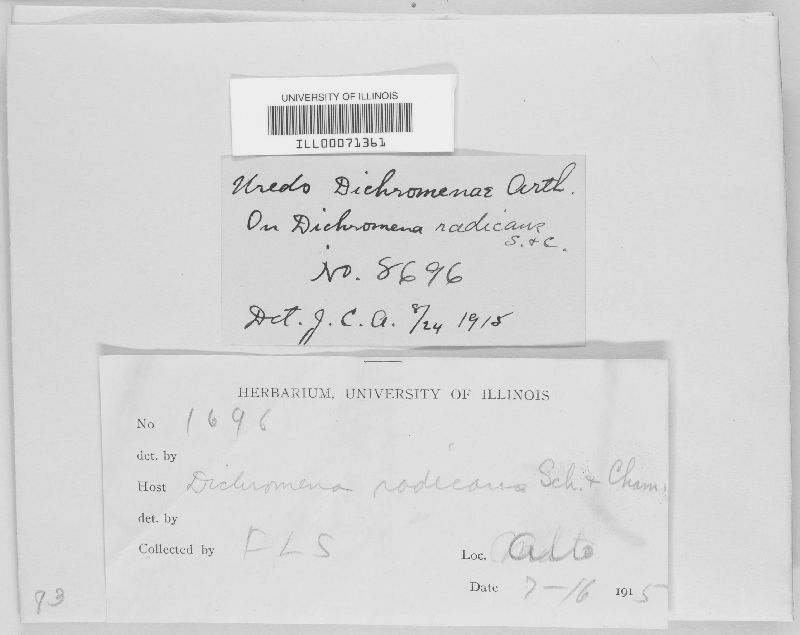 UNIVERSITY OF ILLINOIS
ILL00071361
Uredo Dichromenae Arth.
On Dichromena radicans
S. & C.
No. 8696
Det. J. C. A. 8/24 1915
HERBARIUM, UNIVERSITY OF ILLINOIS
No 1696
det. by
Host Dichromena radicans Sch. & Cham.
det. by
Collected by F L S
Loc.
Date 7-16 1915
93